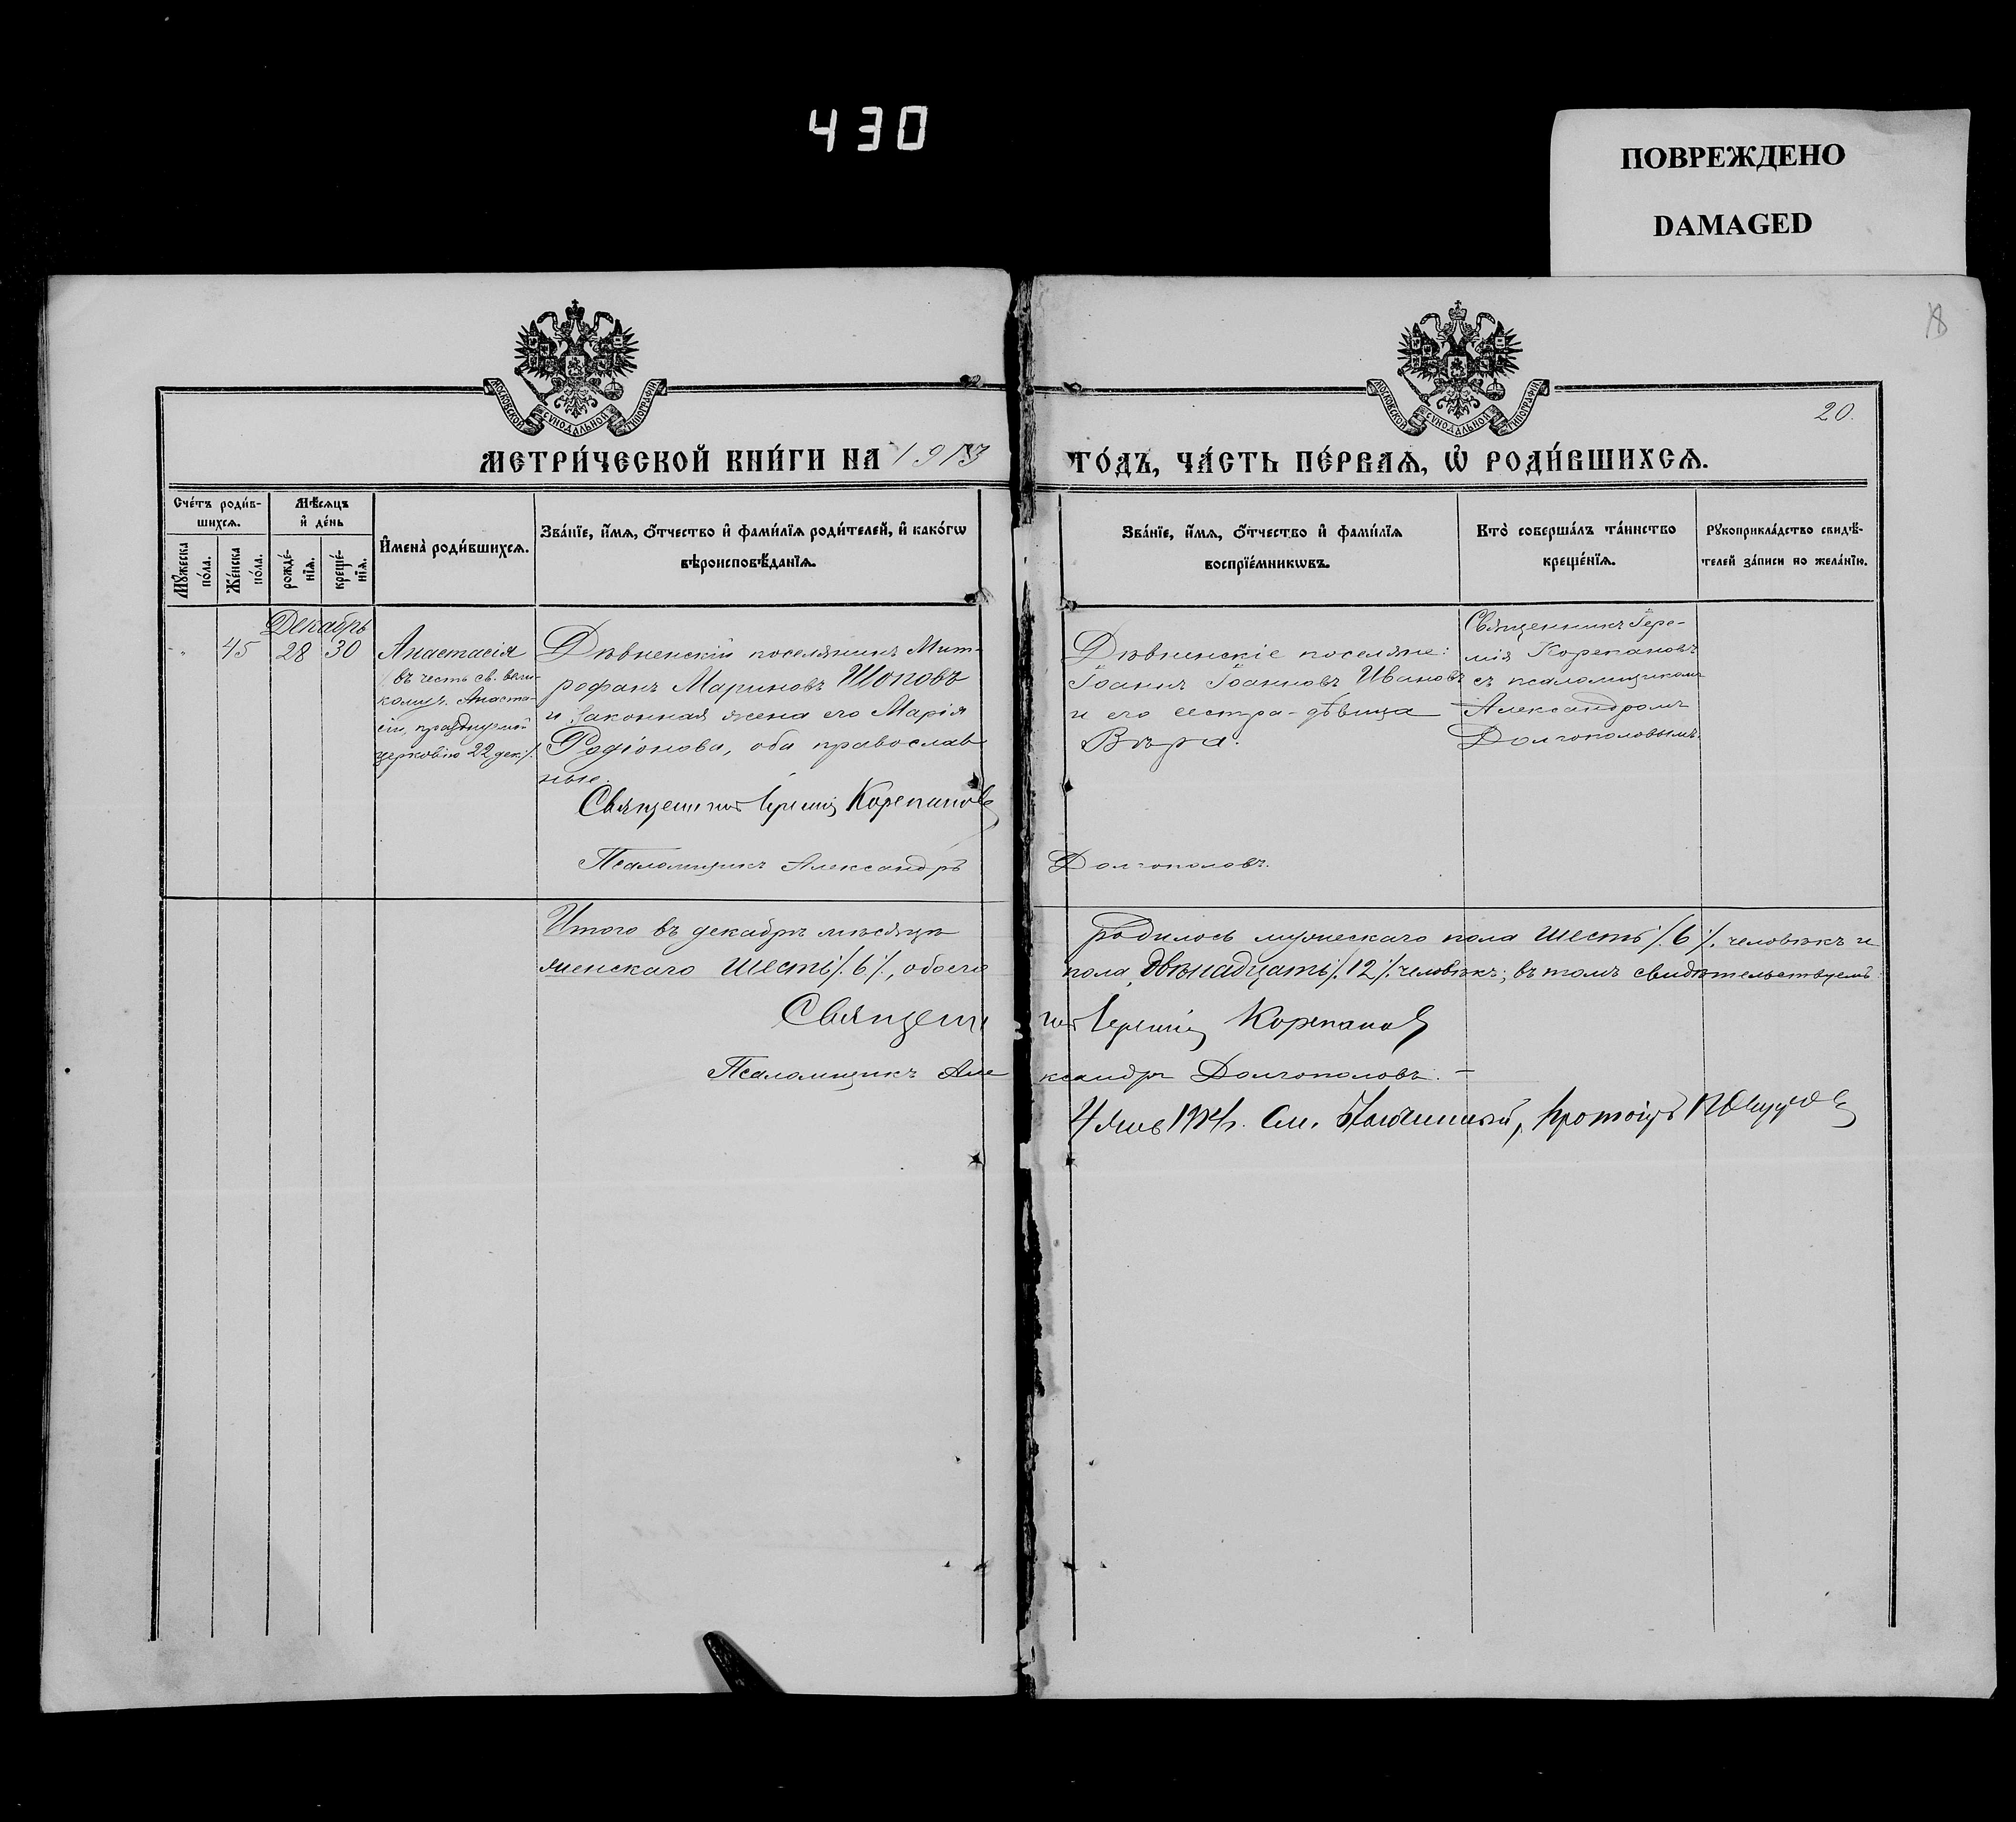 430
ПОВРЕЖДЕНО
DAMAGED
МОСКОВСКОЙ СѴНОДАЛЬНОЙ ТИПОГРАФІИ
МОСКОВСКОЙ СѴНОДАЛЬНОЙ ТИПОГРАФІИ
20.
МЕТРИ́ЧЕСКОЙ КНИ́ГИ НА 1913
ГО́ДЪ, ЧА́СТЬ ПЕ́РВАѦ, Ѡ҆ РОДИ́ВШИХСѦ.
Сче́тъ роди́в-
шихсѧ.
Му́жеска
по́ла.
Же́нска
по́ла.
Мѣ́сѧцъ
и҆ де́нь
рожде́-
нїѧ.
креще́-
нїѧ.
И҆мена̀ роди́вшихсѧ.
Зва́нїе, и҆́мѧ, ѻ҆́тчество и҆ фами́лїѧ роди́телей, и҆ како́гѡ
вѣроисповѣ́данїѧ.
Зва́нїе, и҆́мѧ, ѻ҆́тчество и҆ фами́лїѧ
воспрїе́мникѡвъ.
Кто̀ соверша́лъ та́инство
креще́нїѧ.
Рꙋкоприкла́дство свидѣ́-
телей за́писи по жела́нїю.
Декабрь
" 45 28 30
Анастасія
/. въ честь св. вели-
комуч. Анаста-
сіи, празднуемой
церковію 22 дек./.
Дѣвненскій поселянинъ Мит-
рофанъ Мариновъ Шоповъ
и законная жена его Марія
Родіонова, оба православ-
ные.
Священникъ Іеремія Корепановъ
Псаломщикъ Александръ Долгополовъ.
Дѣвненскіе поселяне:
Іоаннъ Іоанновъ Ивановъ
и его сестра-дѣвица
Вѣра.
Священникъ Іере-
мія Корепановъ
съ псаломщикомъ
Александромъ
Долгополовымъ.
Итого въ декабрѣ мѣсяцѣ родилось мужескаго пола шесть /. 6 /. человѣкъ и
женскаго шесть /. 6 /., обоего пола двѣнадцать /. 12 /. человѣкъ; въ томъ свидѣтельствуемъ:
Священникъ Іеремія Корепановъ
Псаломщикъ Александръ Долгополовъ. –
4 Янв 1914 г. См.